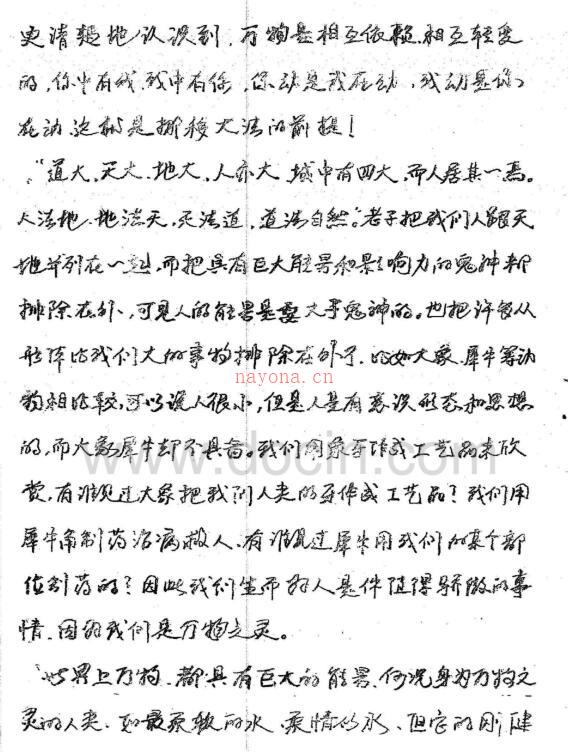 更清楚地认识到，万物是相互依赖，相互转变
的，你中有我，我中有你，你动是我在动，我动是你
在动，这就是挪移大法的前提！
“道大，天大，地大，人亦大，域中有四大，而人居其一焉。
人法地，地法天，天法道，道法自然。”老子把我们人跟天
地并列在一起，而把具有巨大能量和影响力的鬼神都
排除在外，可见人的能量是要大于鬼神的。也把许多从
形体比我们大的事物排除在外了，比如大象、犀牛等动
nayona.cn
物相比较，可以说人很小，但是人是有意识形态和思想
的，而大象犀牛却不具备。我们用象牙作成工艺品来欣
www.docin.com
赏，有谁见过大象把我们人类的牙作成工艺品？我们用
犀牛角制药治病救人，有谁见过犀牛用我们的某个部
位制药的？因此我们生而为人是件值得骄傲的事
情，因为我们是万物之灵。
世界上万物，都具有巨大的能量，何况身为万物之
灵的人类，如最柔软的水，柔情的水，但它的刚健